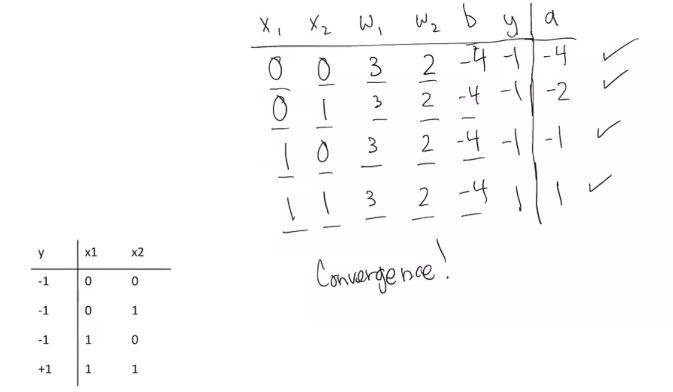 x₁ x₂ w₁ w₂ b y a
0 0 3 2 -4 -1 -4 ✓
0 1 3 2 -4 -1 -2 ✓
1 0 3 2 -4 -1 -1 ✓
1 1 3 2 -4 1 1 ✓
Convergence!
y x1 x2
-1 0 0
-1 0 1
-1 1 0
+1 1 1